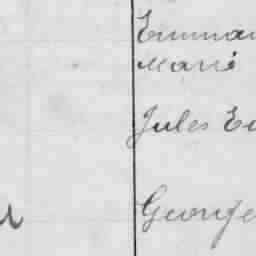 Emman
Marie
Jules E
George